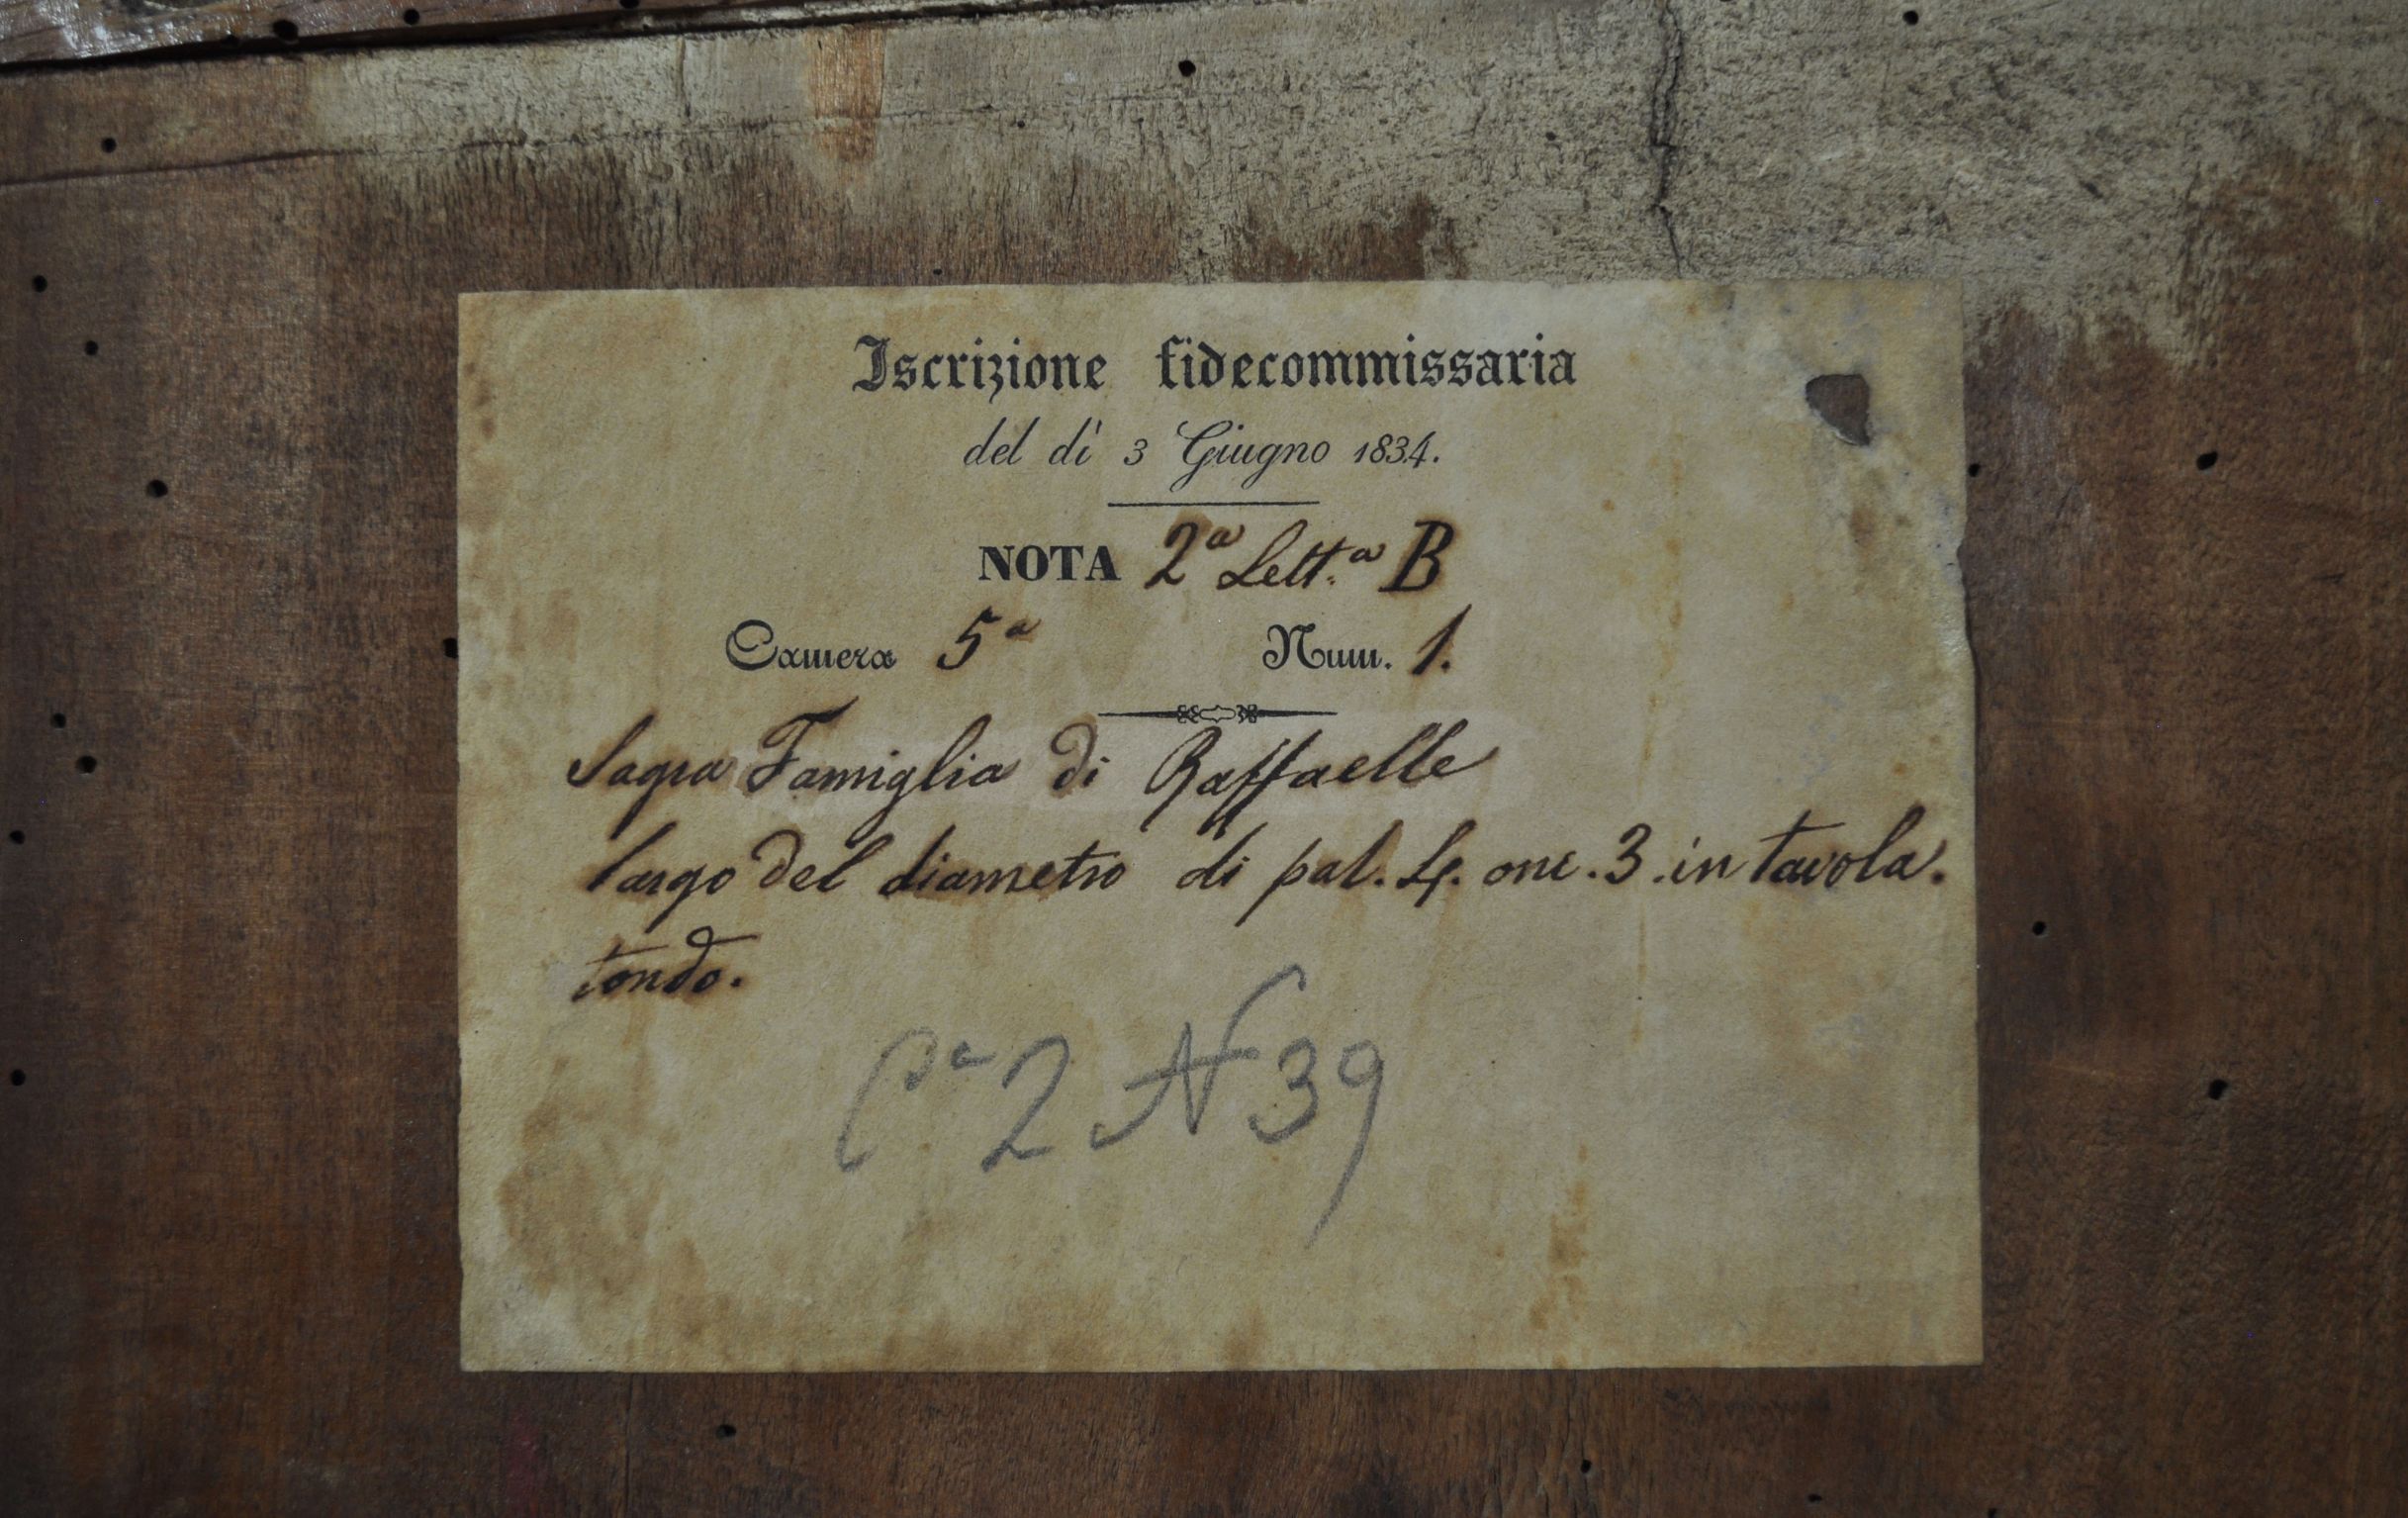 Iscrizione fidecommissaria
del dì 3 Giugno 1834.
NOTA 2ª Lett.ª B
Camera 5ª Num. 1.
Sagra Famiglia di Raffaelle
largo del diametro di pal. 4. onc. 3. in tavola.
tondo.
Cª 2 N 39